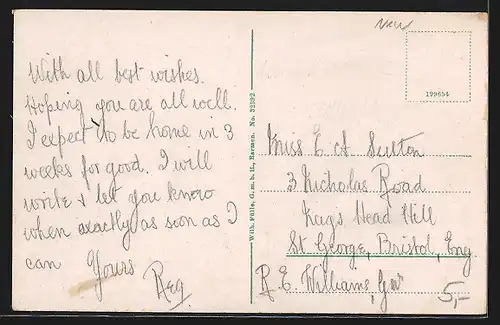 With all best wishes.
Hoping you are all well.
I expect to be home in 3
weeks for good. I will
write & let you know
when exactly as soon as I
can Yours
Reg
Wilh. Fülle, G. m. b. H., Barmen. No. 32392
199654
Miss E A Sutton
3 Nicholas Road
Nags Head Hill
St George, Bristol, Eng.
R. E. Williams, Gnr
5,-